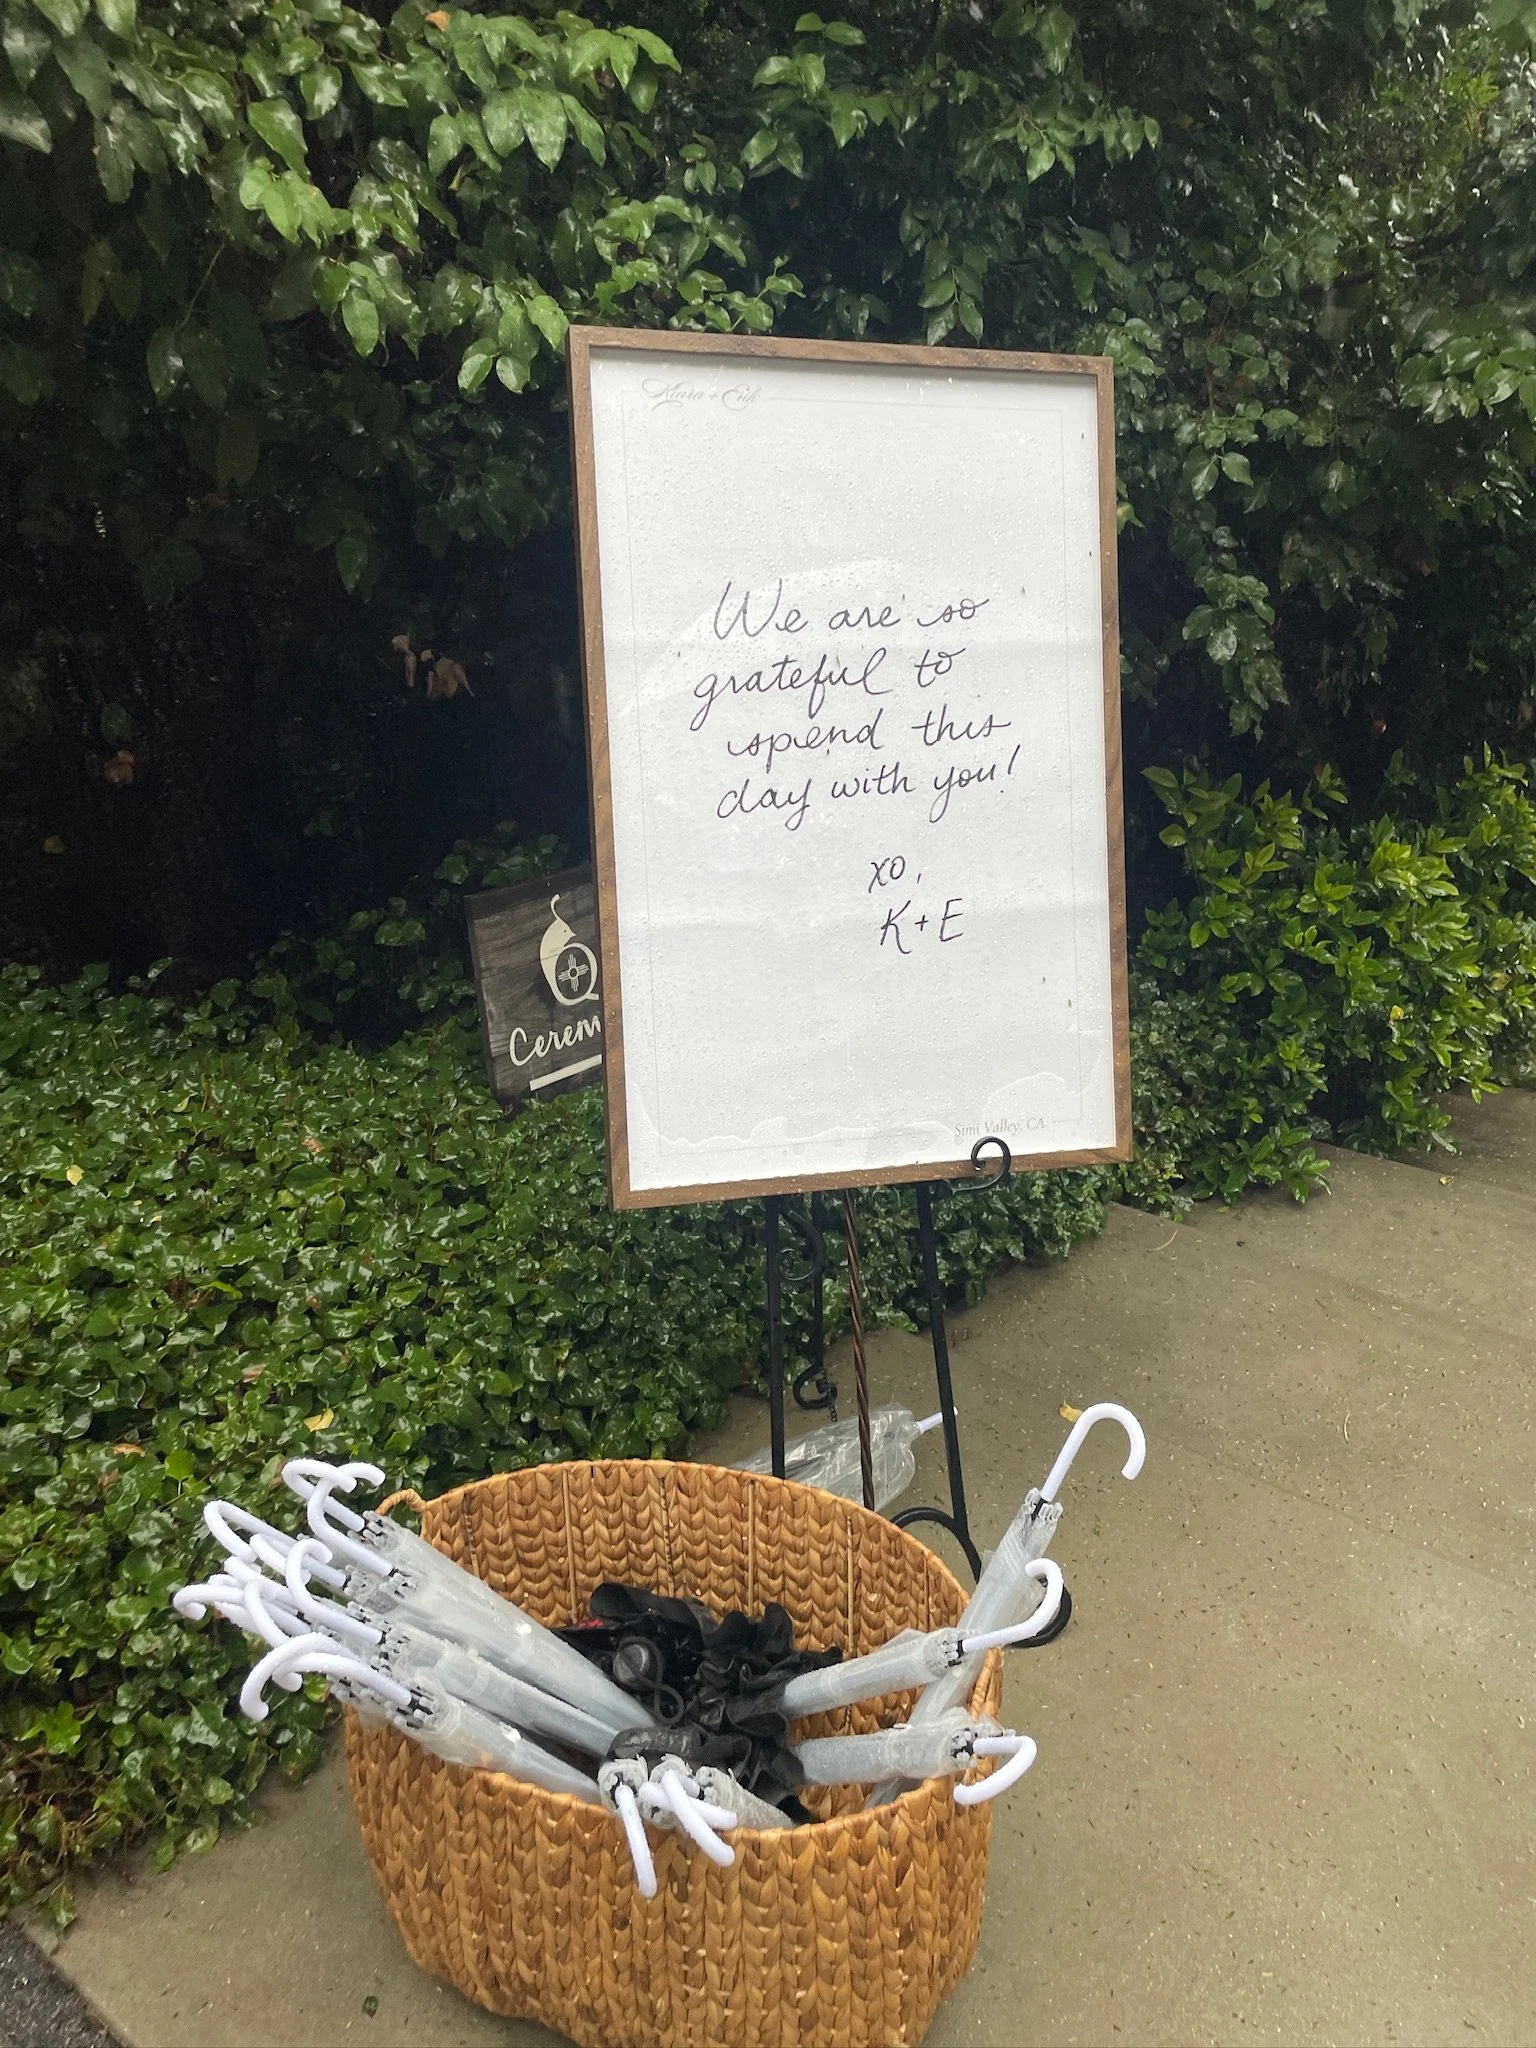 Kiara + Erik
We are so
grateful to
spend this
day with you!
xo,
K + E
Simi Valley, CA
Q
Cerem